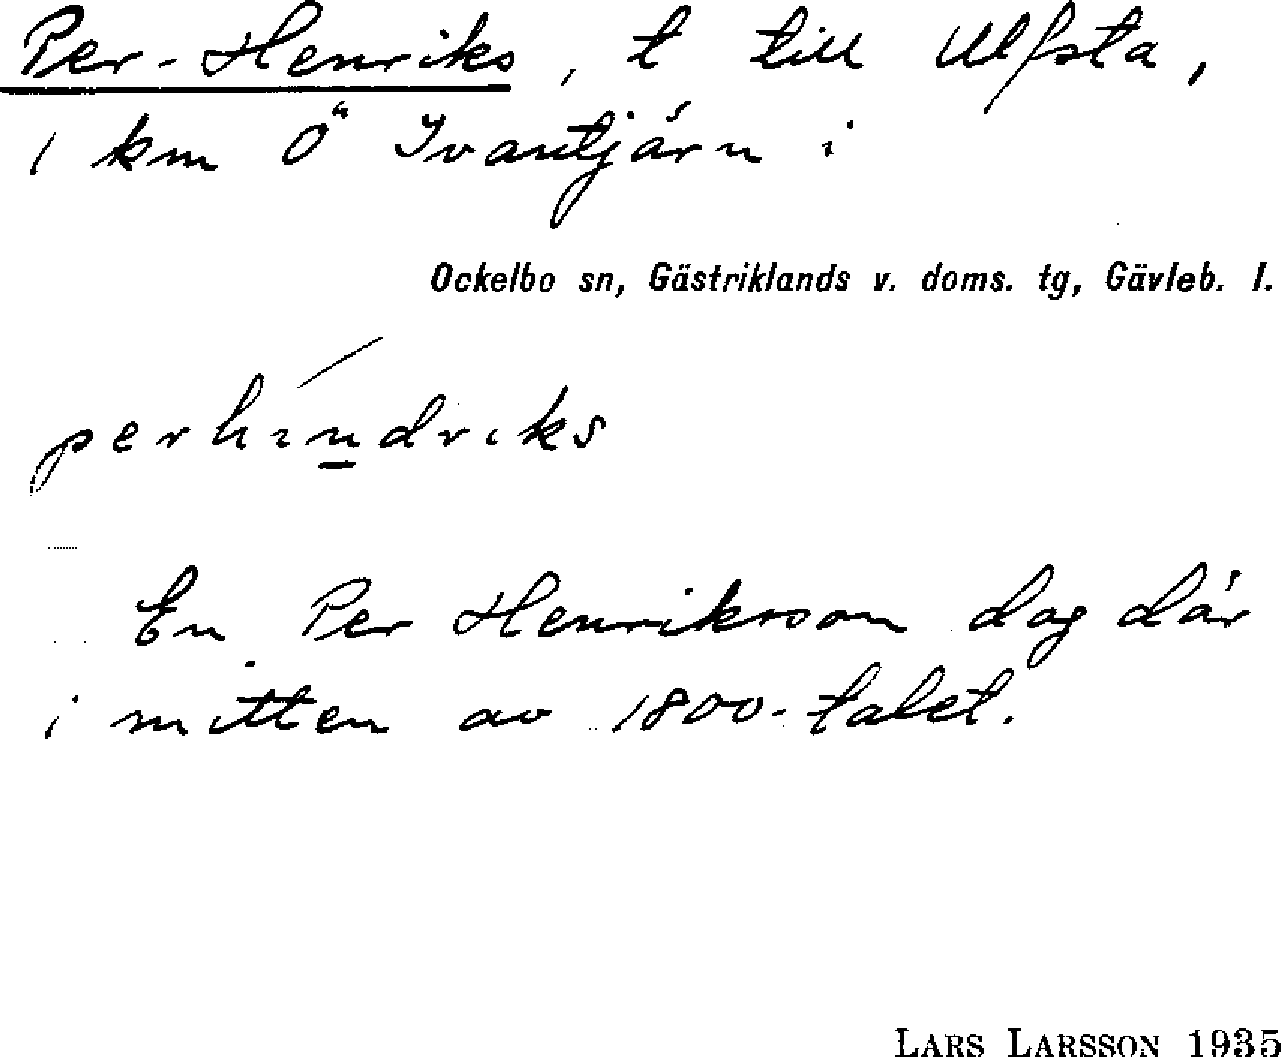 Per-Henriks, t till Ulfsta,
1 km Ö Ivantjärn i
Ockelbo sn, Gästriklands v. doms. tg, Gävleb. l.
perhindriks
En Per Henriksson dog där
i mitten av 1800-talet.
LARS LARSSON 1935